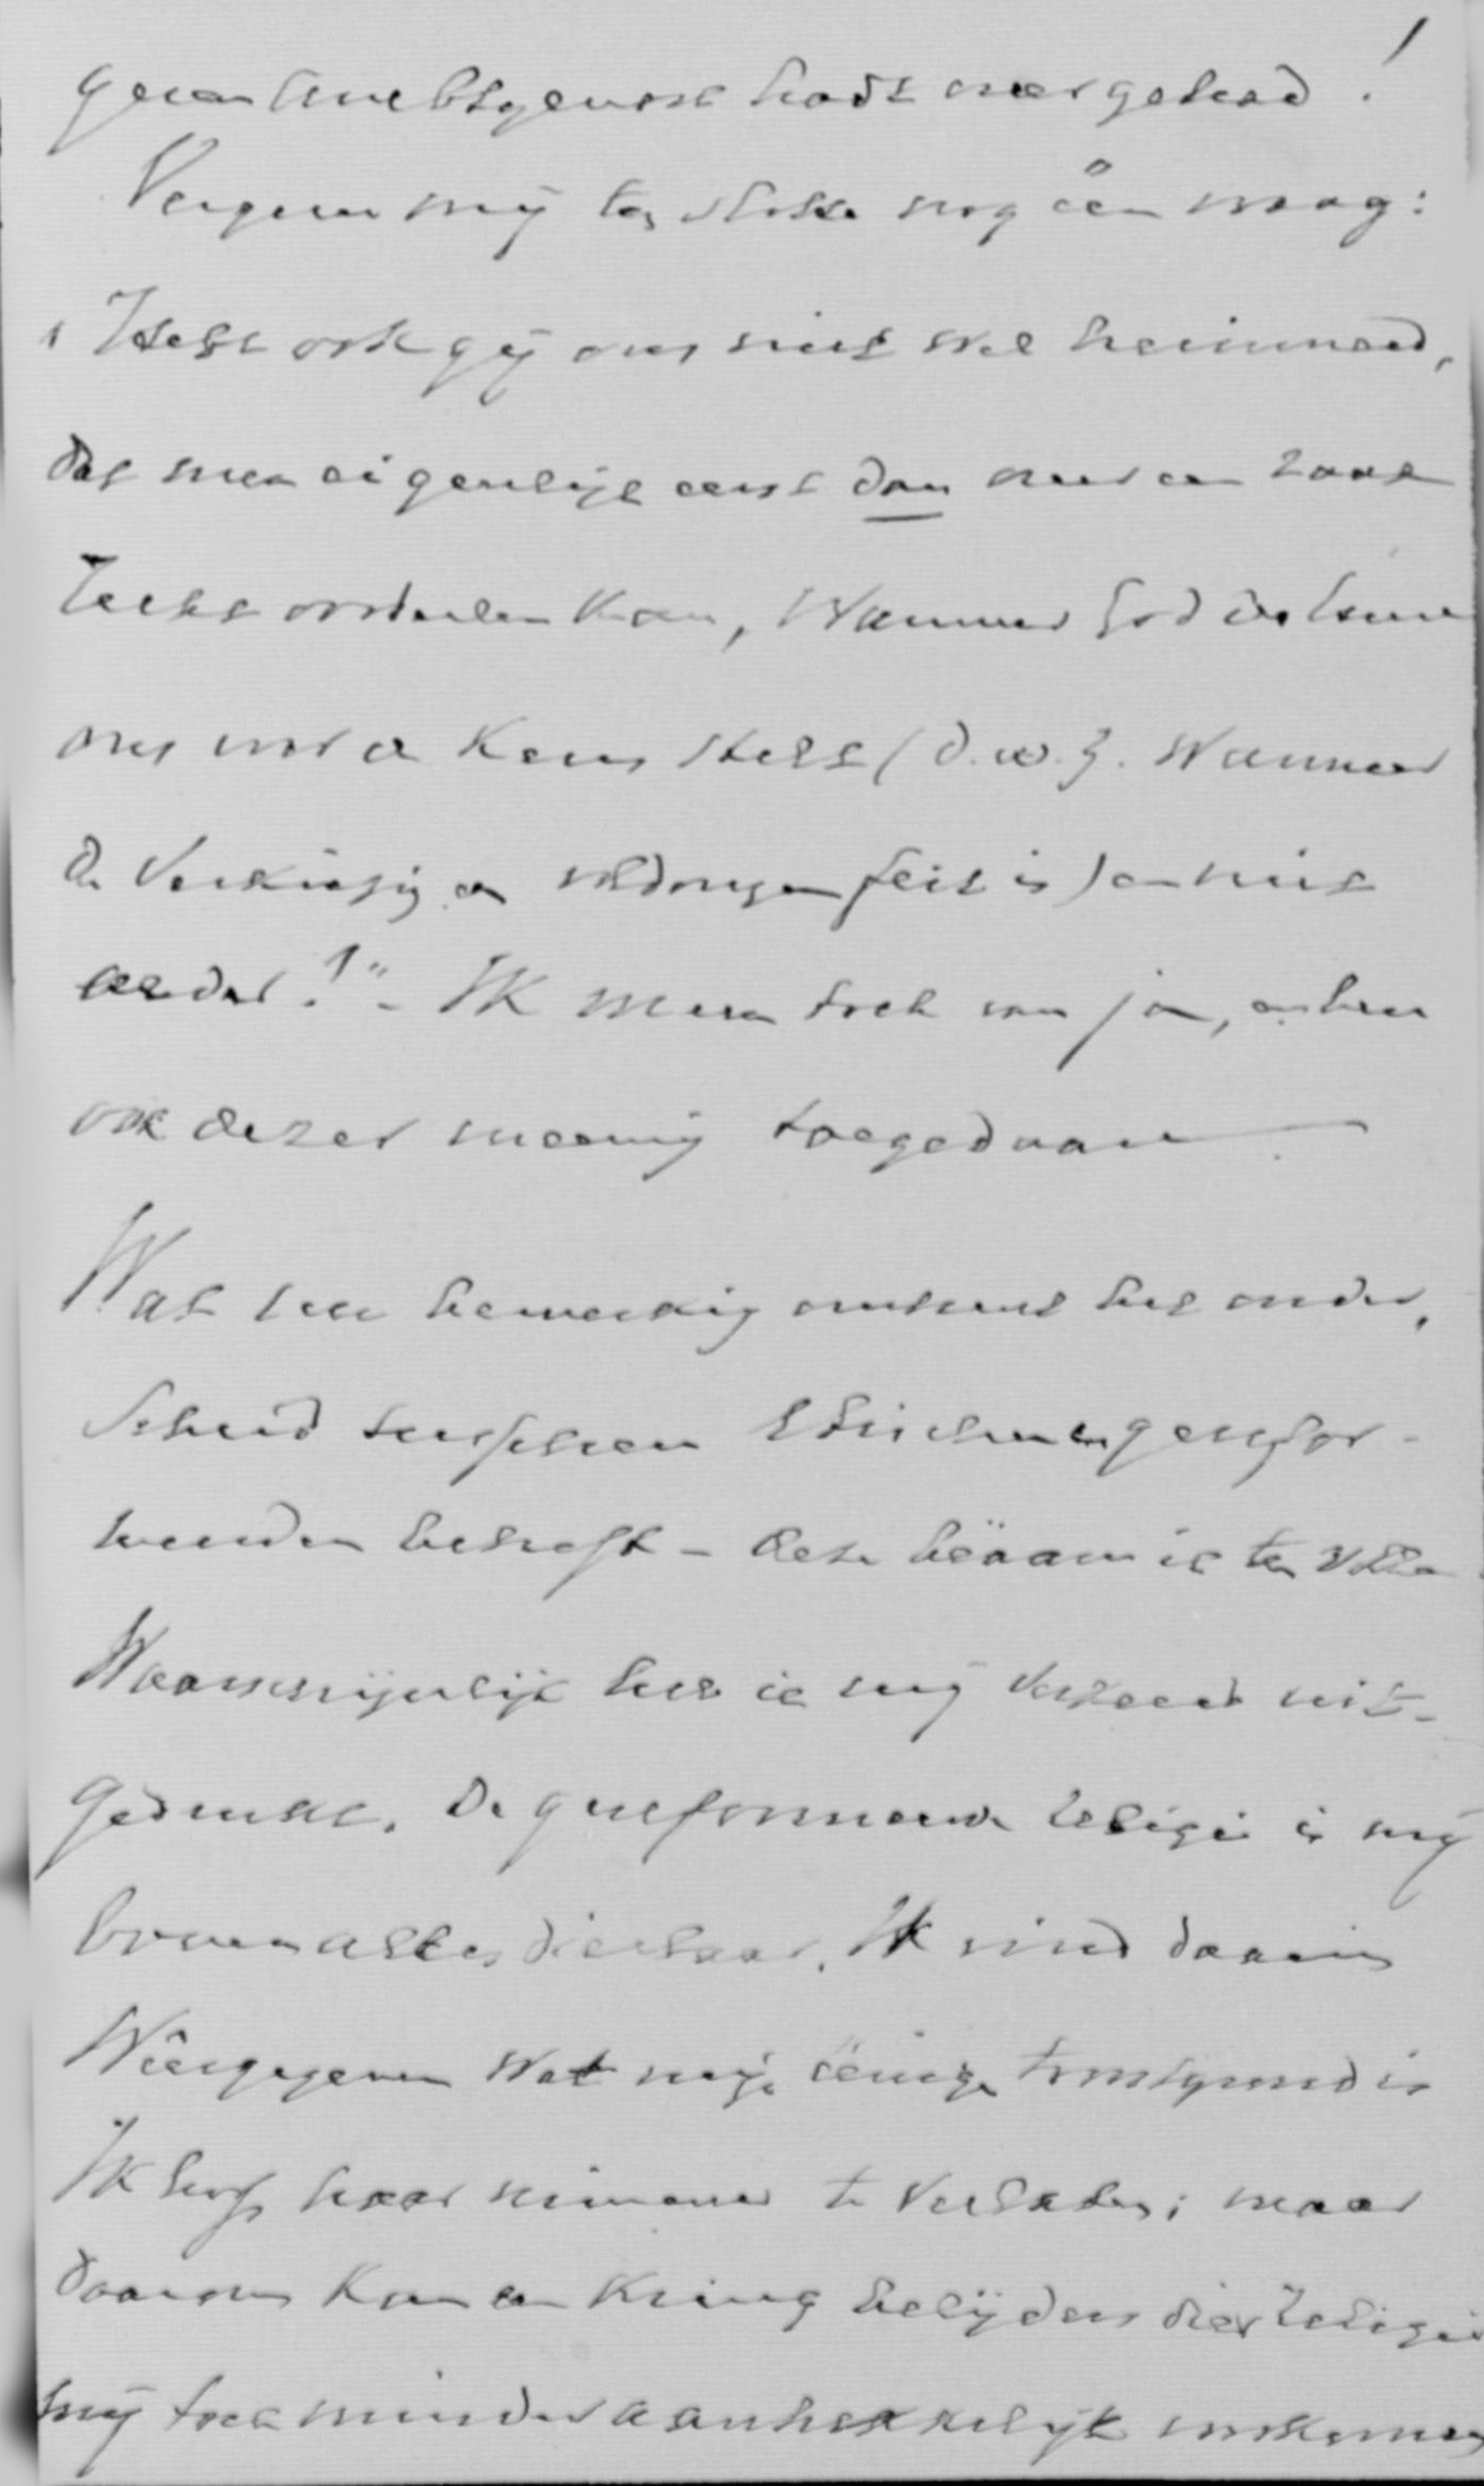 geen ambtgenoot hadt overgehad!
Vergun mij ten slotte nog één vraag:
"Hebt ook gij ons niet wel herinnerd,
dat men eigenlijk eerst dan over een zaak
recht oordeelen kan, wanneer God de Heere
ons voor de keus stelt (d.w.z. wanneer
de verkiezing een voldongen feit is) en niet
eerder?" - Ik meen toch van ja, en ben
ook dezer meening toegedaan.
Wat uw bemerking omtrent het onder-
scheid tusschen Ethischen en gerefor-
meerden betreft - deze beäam ik ten volle
Waarschijnlijk heb ik mij verkeerd uit-
gedrukt. De gereformeerde religie is mij
boven alles dierbaar. Ik vind daarin
Weêrgegeven Wat mijn éénige troostgrond is
Ik hoop haar nimmer te verlaten; maar
daarom kan een kring belijders dier religie
mij toch minder aantrekkelijk voorkomen